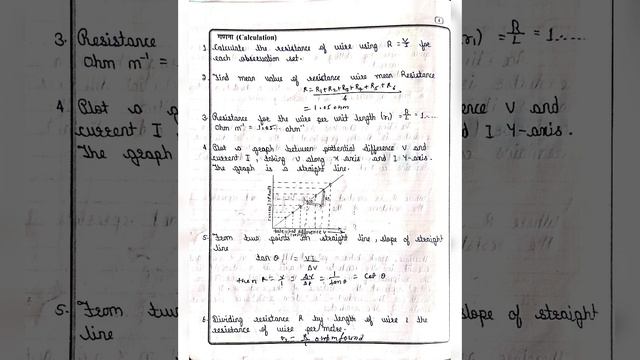 गणना (Calculation)
1. Calculate the resistance of wire using R = V/I for
each observation set.
2. Find mean value of resistance wire mean Resistance
R = R₁+R₂+R₃+R₄+R₅+R₆
6
= 1.05 ohm
3. Resistance for the wire per unit length (r₁) = R/L = 1....
Ohm m⁻¹ = 1.05 ohm⁻
4. Plot a graph between potential difference V and
current I, taking V along X axis and I Y-axis.
The graph is a straight line.
5. From two points on straight line, slope of straight
line
tan θ =
ΔV
then R = = ΔV/ΔI = 1/tanθ = Cot θ
6. Dividing resistance R by length of wire L the
resistance of wire per metre.
3. Resistance
Ohm m⁻¹ =
4. Plot a g
current I
The graph
5. From tw
line
r₁) = R/L = 1.....
ence V and
d I Y-axis.
slope of straight